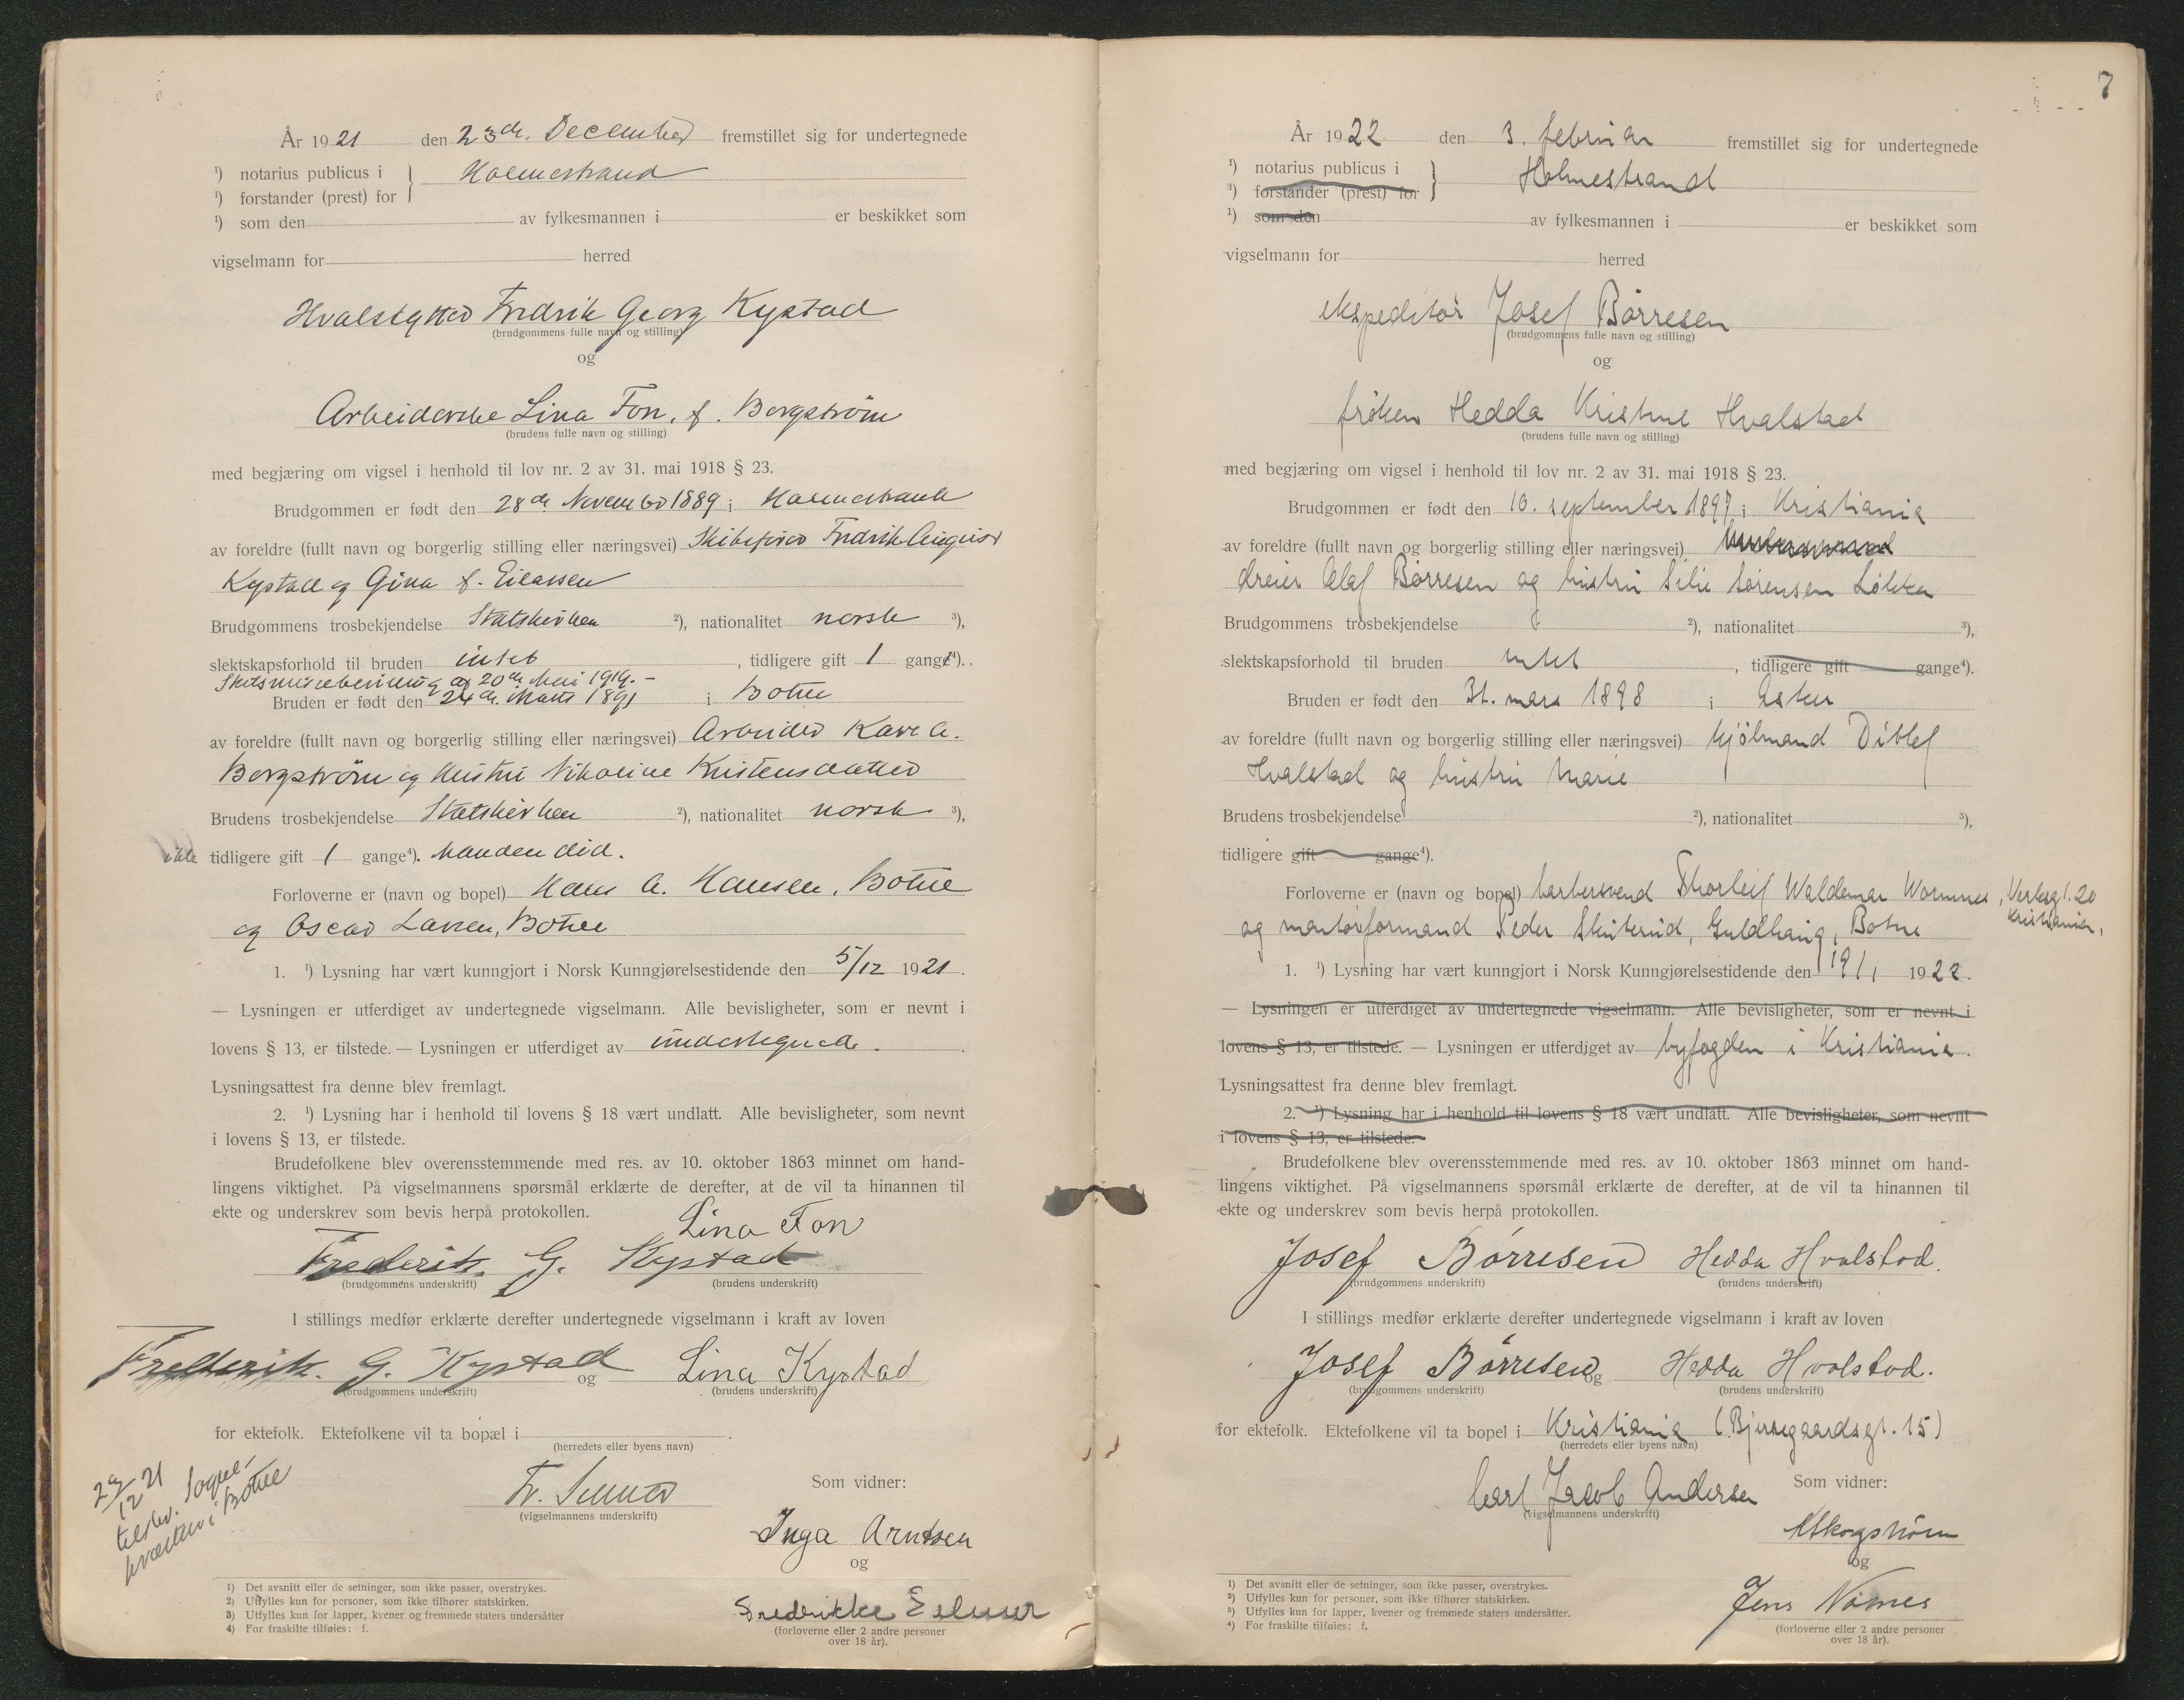 År 1921 den 23de. December fremstillet sig for undertegnede
¹) notarius publicus i } Holmestrand
¹) forstander (prest) for
¹) som den av fylkesmannen i er beskikket som
vigselmann for herred
Hvalskytter Fredrik Georg Kystad
(brudgommens fulle navn og stilling)
og
Arbeiderske Lina Fon, f. Bergstrøm
(brudens fulle navn og stilling)
med begjæring om vigsel i henhold til lov nr. 2 av 31. mai 1918 § 23.
Brudgommen er født den 28de November 1889 i Holmestrand
av foreldre (fullt navn og borgerlig stilling eller næringsvei) Skibsfører Fredrik August
Kystad og Gina f. Eliassen
Brudgommens trosbekjendelse Statskirken ²), nationalitet norsk ³),
slektskapsforhold til bruden intet, tidligere gift 1 gang⁴).
Skilsmissebevilling af 20de Mai 1919. -
Bruden er født den 24de. Marts 1891 i Botne
av foreldre (fullt navn og borgerlig stilling eller næringsvei) Arbeider Karl A.
Bergstrøm og Hustru Nikoline Kristensdatter
Brudens trosbekjendelse Statskirken ²), nationalitet norsk ³),
ikke tidligere gift 1 gange⁴). Manden død.
Forloverne er (navn og bopel) Hans A. Hansen, Botne
og Oscar Larsen, Botne
1. ¹) Lysning har vært kunngjort i Norsk Kunngjørelsestidende den 5/12 1921.
— Lysningen er utferdiget av undertegnede vigselmann. Alle bevisligheter, som er nevnt i
lovens § 13, er tilstede. — Lysningen er utferdiget av undertegnede.
Lysningsattest fra denne blev fremlagt.
2. ¹) Lysning har i henhold til lovens § 18 vært undlatt. Alle bevisligheter, som nevnt
i lovens § 13, er tilstede.
Brudefolkene blev overensstemmende med res. av 10. oktober 1863 minnet om hand-
lingens viktighet. På vigselmannens spørsmål erklærte de derefter, at de vil ta hinannen til
ekte og underskrev som bevis herpå protokollen.
Lina Fon
Frederik. G. Kystad
(brudgommens underskrift) (brudens underskrift)
I stillings medfør erklærte derefter undertegnede vigselmann i kraft av loven
Frederik. G. Kystad og Lina Kystad
(brudgommens underskrift) (brudens underskrift)
for ektefolk. Ektefolkene vil ta bopæl i .
(herredets eller byens navn)
Som vidner:
(vigselmannens underskrift)
Inga Arntsen
og
Fredrikke
(forloverne eller 2 andre personer
over 18 år).
12 21
Sogne-
i Botne
1) Det avsnitt eller de setninger, som ikke passer, overstrykes.
2) Utfylles kun for personer, som ikke tilhører statskirken.
3) Utfylles kun for lapper, kvener og fremmede staters undersåtter
4) For fraskilte tilføies: f.
7
År 1922 den 3. februar fremstillet sig for undertegnede
¹) notarius publicus i } Holmestrand
¹) forstander (prest) for
¹) som den av fylkesmannen i er beskikket som
vigselmann for herred
ekspeditør Josef Børresen
(brudgommens fulle navn og stilling)
og
frøken Hedda Kristine Hvalstad
(brudens fulle navn og stilling)
med begjæring om vigsel i henhold til lov nr. 2 av 31. mai 1918 § 23.
Brudgommen er født den 10. september 1897 i Kristiania
av foreldre (fullt navn og borgerlig stilling eller næringsvei)
dreier Olaf Børresen og hustru Silie Sørensen Løkken
Brudgommens trosbekjendelse ²), nationalitet ³),
slektskapsforhold til bruden intet, tidligere gift gange⁴).
Bruden er født den 31. mars 1898 i Asker
av foreldre (fullt navn og borgerlig stilling eller næringsvei) hjólmand Ditlef
Hvalstad og hustru Marie
Brudens trosbekjendelse ²), nationalitet ³),
tidligere gift gange⁴).
Forloverne er (navn og bopel) barbersvend Thorleif Waldemar Wormnes, Verksgt. 20
Kristiania,
og montørformand Peder Skuterud, Guldhaug, Botne
1. ¹) Lysning har vært kunngjort i Norsk Kunngjørelsestidende den 19/1 1922.
— Lysningen er utferdiget av undertegnede vigselmann. Alle bevisligheter, som er nevnt i
lovens § 13, er tilstede. — Lysningen er utferdiget av byfogden i Kristiania.
Lysningsattest fra denne blev fremlagt.
2. ¹) Lysning har i henhold til lovens § 18 vært undlatt. Alle bevisligheter, som nevnt
i lovens § 13, er tilstede.
Brudefolkene blev overensstemmende med res. av 10. oktober 1863 minnet om hand-
lingens viktighet. På vigselmannens spørsmål erklærte de derefter, at de vil ta hinannen til
ekte og underskrev som bevis herpå protokollen.
Josef Børresen Hedda Hvalstad.
(brudgommens underskrift) (brudens underskrift)
I stillings medfør erklærte derefter undertegnede vigselmann i kraft av loven
Josef Børresen og Hedda Hvalstad.
(brudgommens underskrift) (brudens underskrift)
for ektefolk. Ektefolkene vil ta bopel i Kristiania (Bjerregaardsgt. 15)
(herredets eller byens navn)
Carl Jacob Andersen Som vidner:
(vigselmannens underskrift)
og
Jens
(forloverne eller 2 andre personer
over 18 år).
1) Det avsnitt eller de setninger, som ikke passer, overstrykes.
2) Utfylles kun for personer, som ikke tilhører statskirken.
3) Utfylles kun for lapper, kvener og fremmede staters undersåtter.
4) For fraskilte tilføies: f.